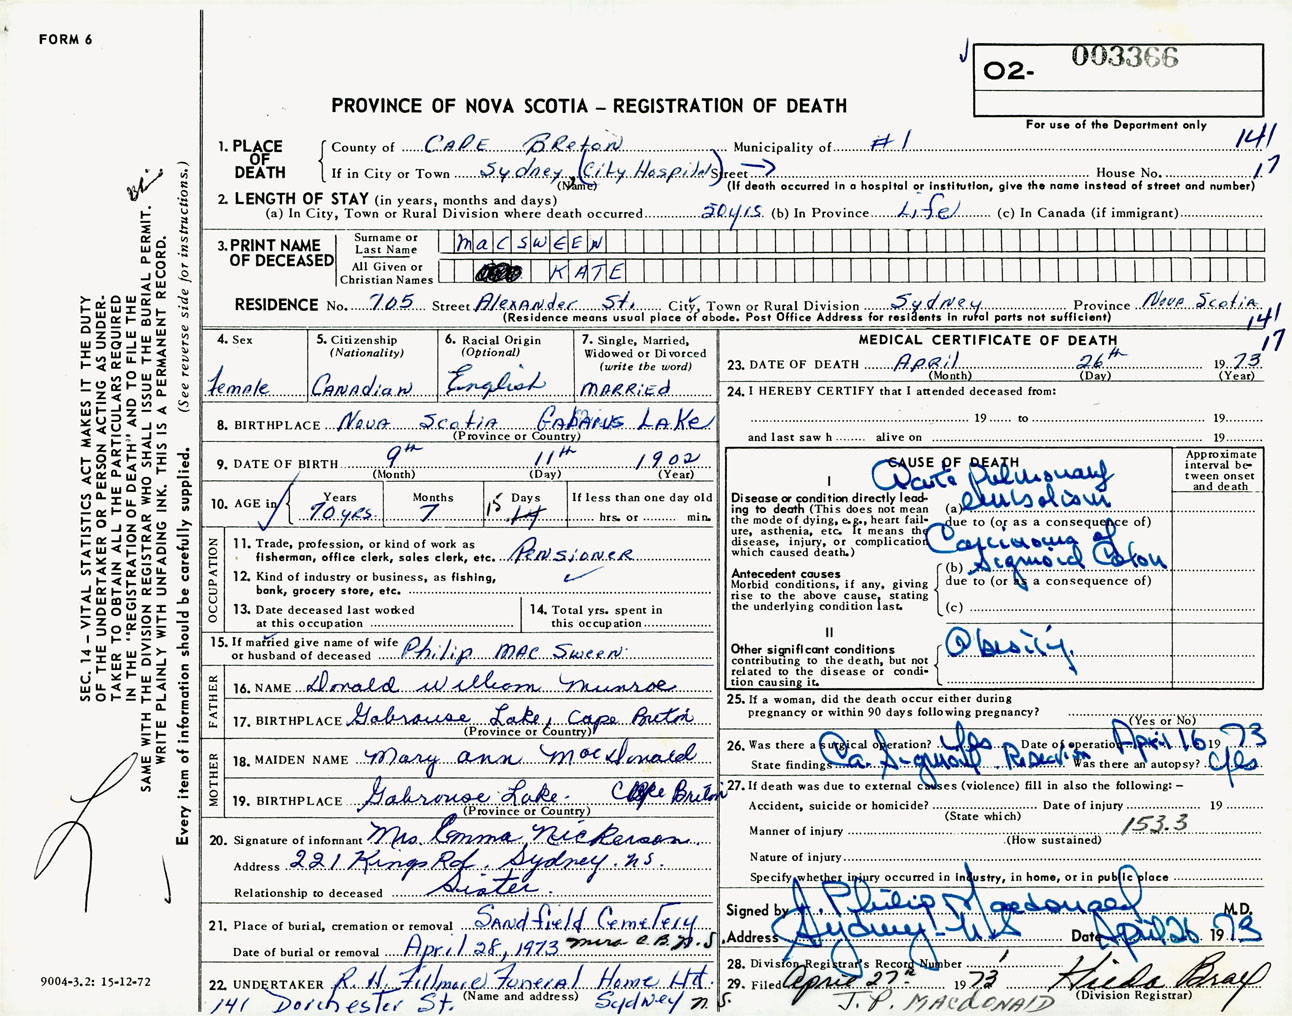 FORM 6
003366
O2-
For use of the Department only
PROVINCE OF NOVA SCOTIA – REGISTRATION OF DEATH
1. PLACE OF DEATH
County of CAPE BRETON Municipality of #1 141
If in City or Town Sydney (City Hospital) Street House No. 17
(Name) (If death occurred in a hospital or institution, give the name instead of street and number)
2. LENGTH OF STAY (in years, months and days)
(a) In City, Town or Rural Division where death occurred 50 yrs (b) In Province Life (c) In Canada (if immigrant)
3. PRINT NAME OF DECEASED
Surname or Last Name MACSWEEN
All Given or Christian Names KATE
RESIDENCE No. 705 Street Alexander St. City, Town or Rural Division Sydney Province Nova Scotia
(Residence means usual place of abode. Post Office Address for residents in rural parts not sufficient) 141
17
4. Sex Female
5. Citizenship (Nationality) CANADIAN
6. Racial Origin (Optional) English
7. Single, Married, Widowed or Divorced (write the word) MARRIED
8. BIRTHPLACE Nova Scotia GABARUS LAKE
(Province or Country)
9. DATE OF BIRTH 9th 11th 1902
(Month) (Day) (Year)
10. AGE in Years 70 yrs. Months 7 Days 15 14 If less than one day old hrs. or min.
OCCUPATION
11. Trade, profession, or kind of work as fisherman, office clerk, sales clerk, etc. PENSIONER
12. Kind of industry or business, as fishing, bank, grocery store, etc.
13. Date deceased last worked at this occupation
14. Total yrs. spent in this occupation
15. If married give name of wife or husband of deceased Philip MacSween
FATHER
16. NAME Donald William Munroe
17. BIRTHPLACE Gabrouse Lake, Cape Breton
(Province or Country)
MOTHER
18. MAIDEN NAME Mary Ann MacDonald
19. BIRTHPLACE Gabrouse Lake. Cape Breton
(Province or Country)
20. Signature of informant Mrs. Emma Nickerson
Address 221 Kings Rd. Sydney. N.S.
Relationship to deceased Sister.
21. Place of burial, cremation or removal Sandfield Cemetery
Date of burial or removal April 28, 1973 C.B. N.S.
22. UNDERTAKER R. H. Fillmore Funeral Home Ltd.
(Name and address)
141 Dorchester St. Sydney N.S.
MEDICAL CERTIFICATE OF DEATH
23. DATE OF DEATH April 26th 1973
(Month) (Day) (Year)
24. I HEREBY CERTIFY that I attended deceased from:
19 to 19
and last saw h alive on 19
CAUSE OF DEATH
Approximate interval between onset and death
I
Disease or condition directly leading to death (This does not mean the mode of dying, e.g., heart failure, asthenia, etc. It means the disease, injury, or complication which caused death.)
(a) Acute Pulmonary embolism
due to (or as a consequence of)
Antecedent causes
Morbid conditions, if any, giving rise to the above cause, stating the underlying condition last.
(b) Carcinoma of Sigmoid Colon
due to (or as a consequence of)
(c)
II
Other significant conditions contributing to the death, but not related to the disease or condition causing it.
Obesity.
25. If a woman, did the death occur either during pregnancy or within 90 days following pregnancy?
(Yes or No)
26. Was there a surgical operation? Yes Date of operation April 16 1973
State findings Ca. Sigmoid Resection Was there an autopsy? Yes
27. If death was due to external causes (violence) fill in also the following: –
Accident, suicide or homicide? Date of injury 19
(State which)
Manner of injury 153.3
(How sustained)
Nature of injury
Specify whether injury occurred in industry, in home, or in public place
Signed by J. Philip Macdonald M.D.
Address Sydney. N.S Date April 26 1973
28. Division Registrar's Record Number
29. Filed April 27th 1973 Hilda Bray
(Division Registrar)
J. P. MACDONALD
SEC. 14 – VITAL STATISTICS ACT MAKES IT THE DUTY
OF THE UNDERTAKER OR PERSON ACTING AS UNDER-
TAKER TO OBTAIN ALL THE PARTICULARS REQUIRED
IN THE "REGISTRATION OF DEATH" AND TO FILE THE
SAME WITH THE DIVISION REGISTRAR WHO SHALL ISSUE THE BURIAL PERMIT.
WRITE PLAINLY WITH UNFADING INK. THIS IS A PERMANENT RECORD.
Every item of information should be carefully supplied. (See reverse side for instructions.)
9004-3.2: 15-12-72